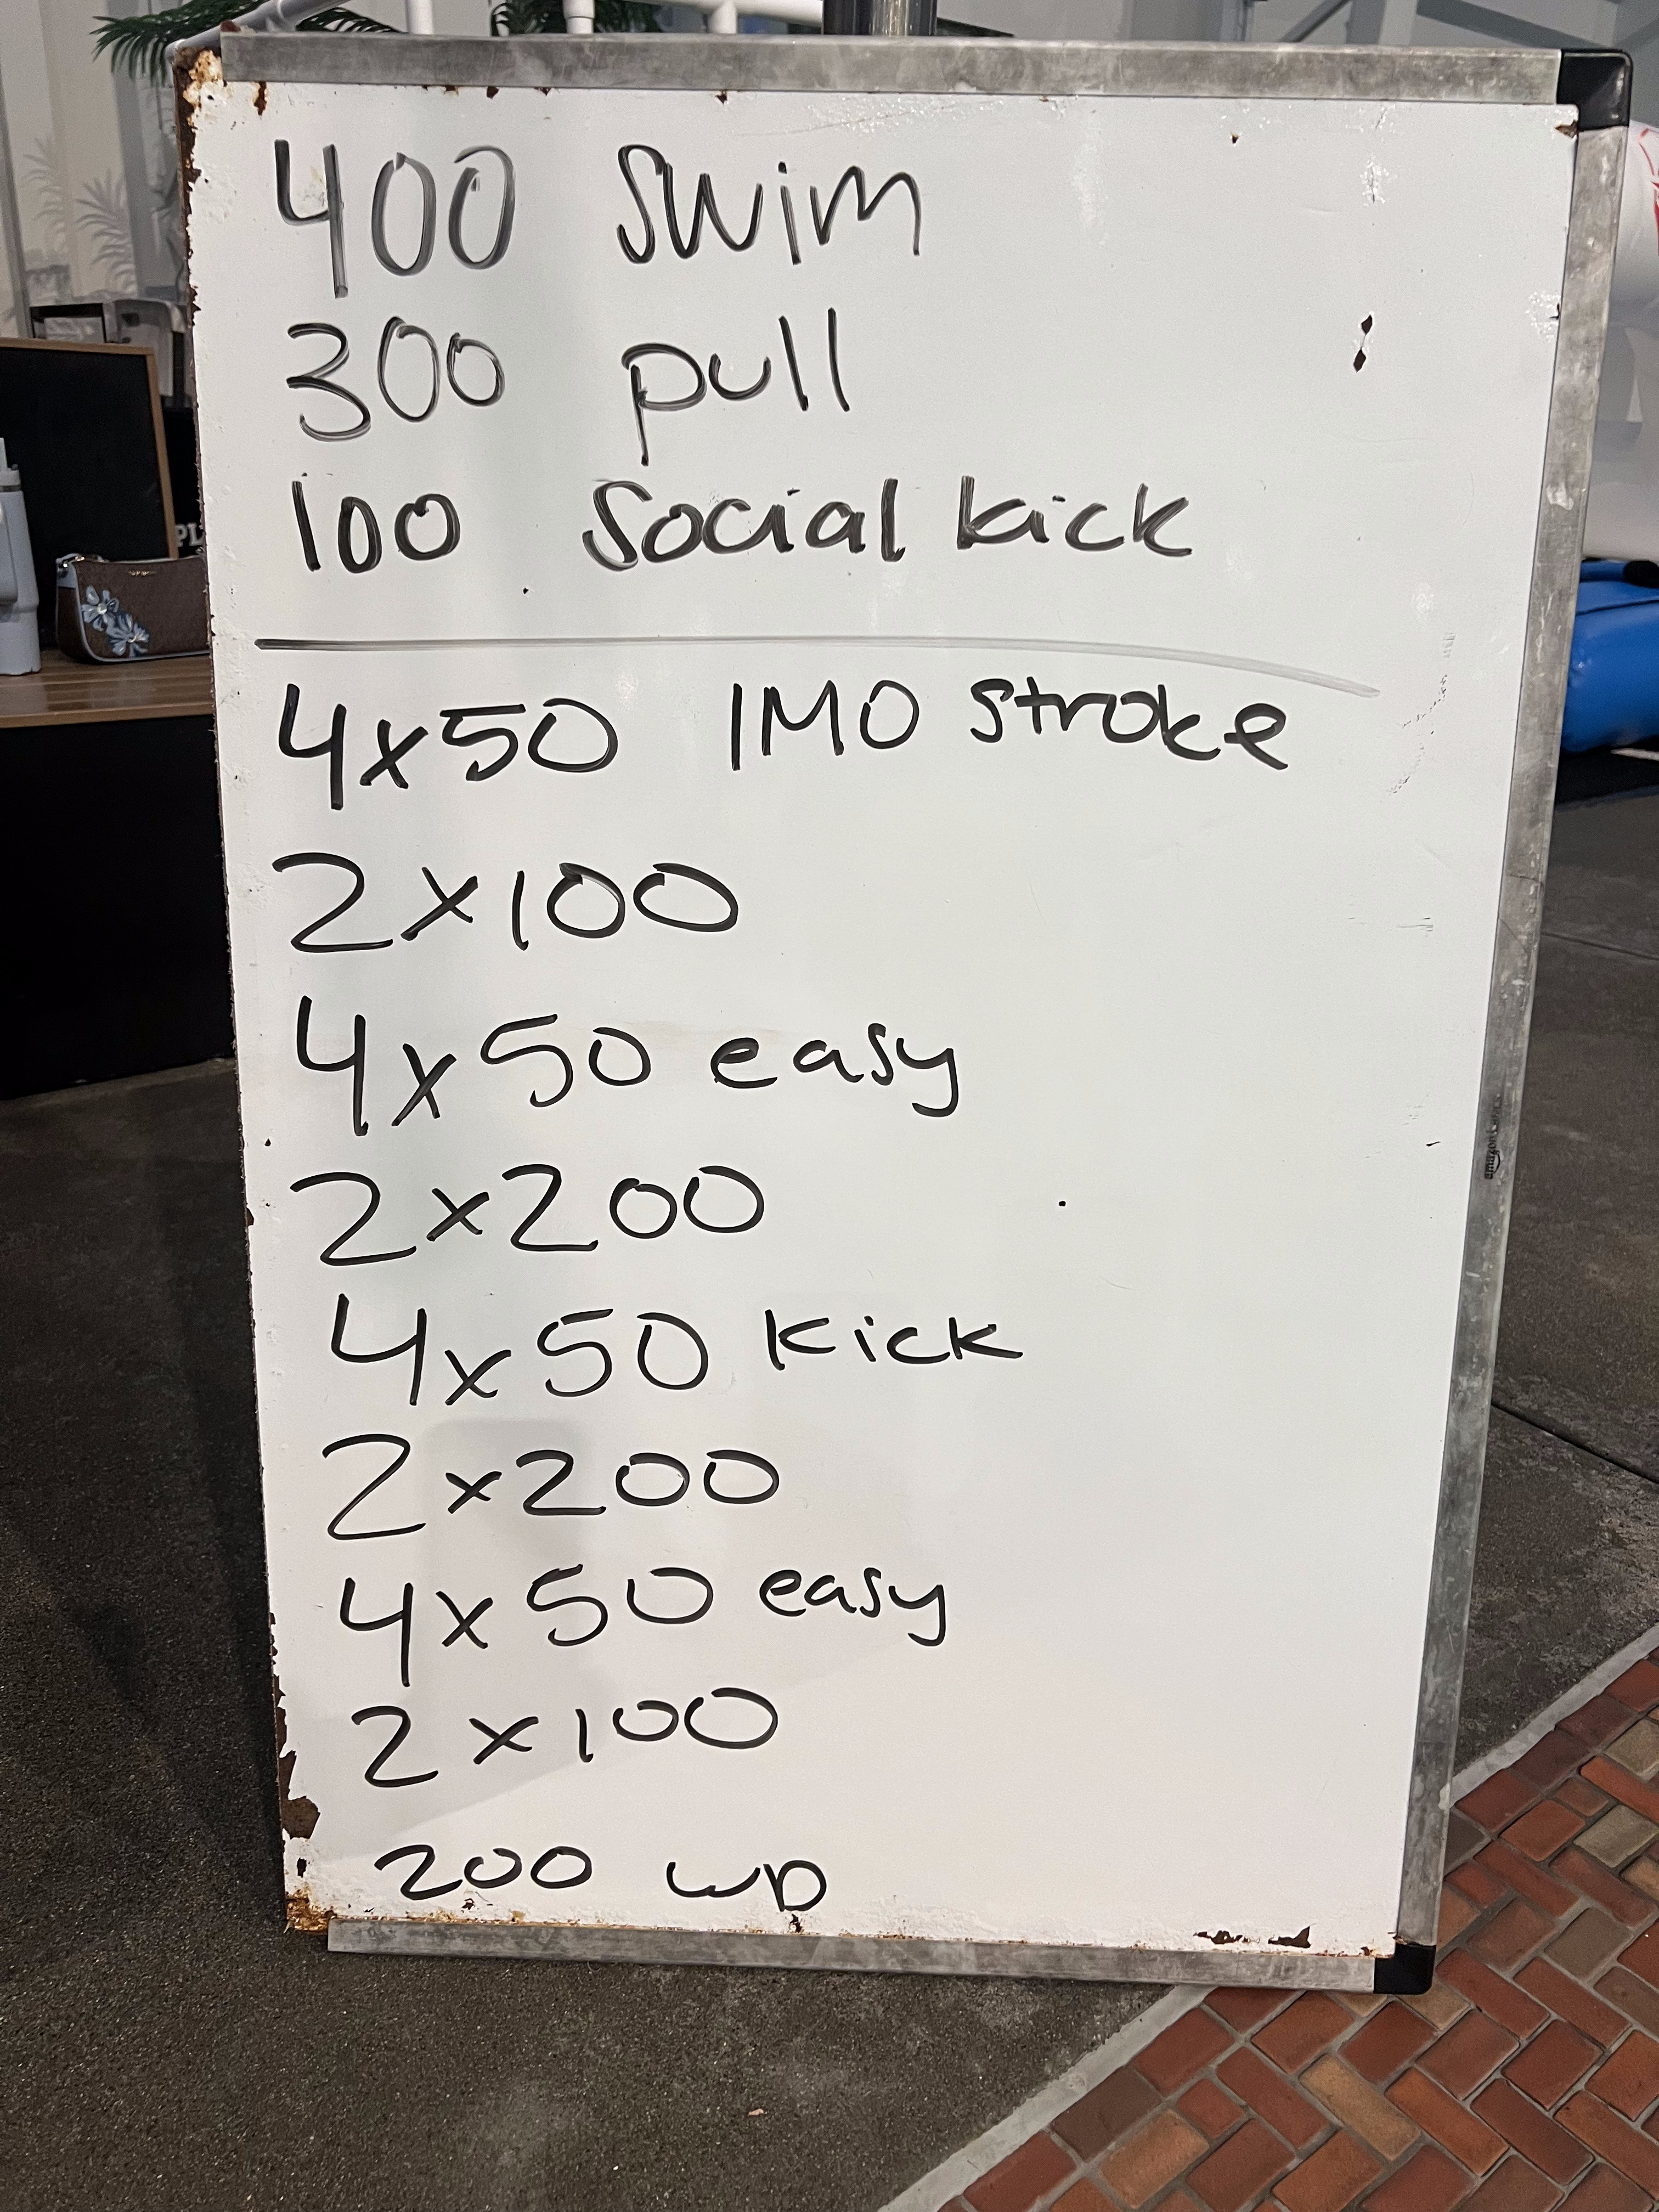 400 Swim
300 pull
100 Social kick
4x50 IMO Stroke
2x100
4x50 easy
2x200
4x50 kick
2x200
4x50 easy
2x100
200 WD
amazon